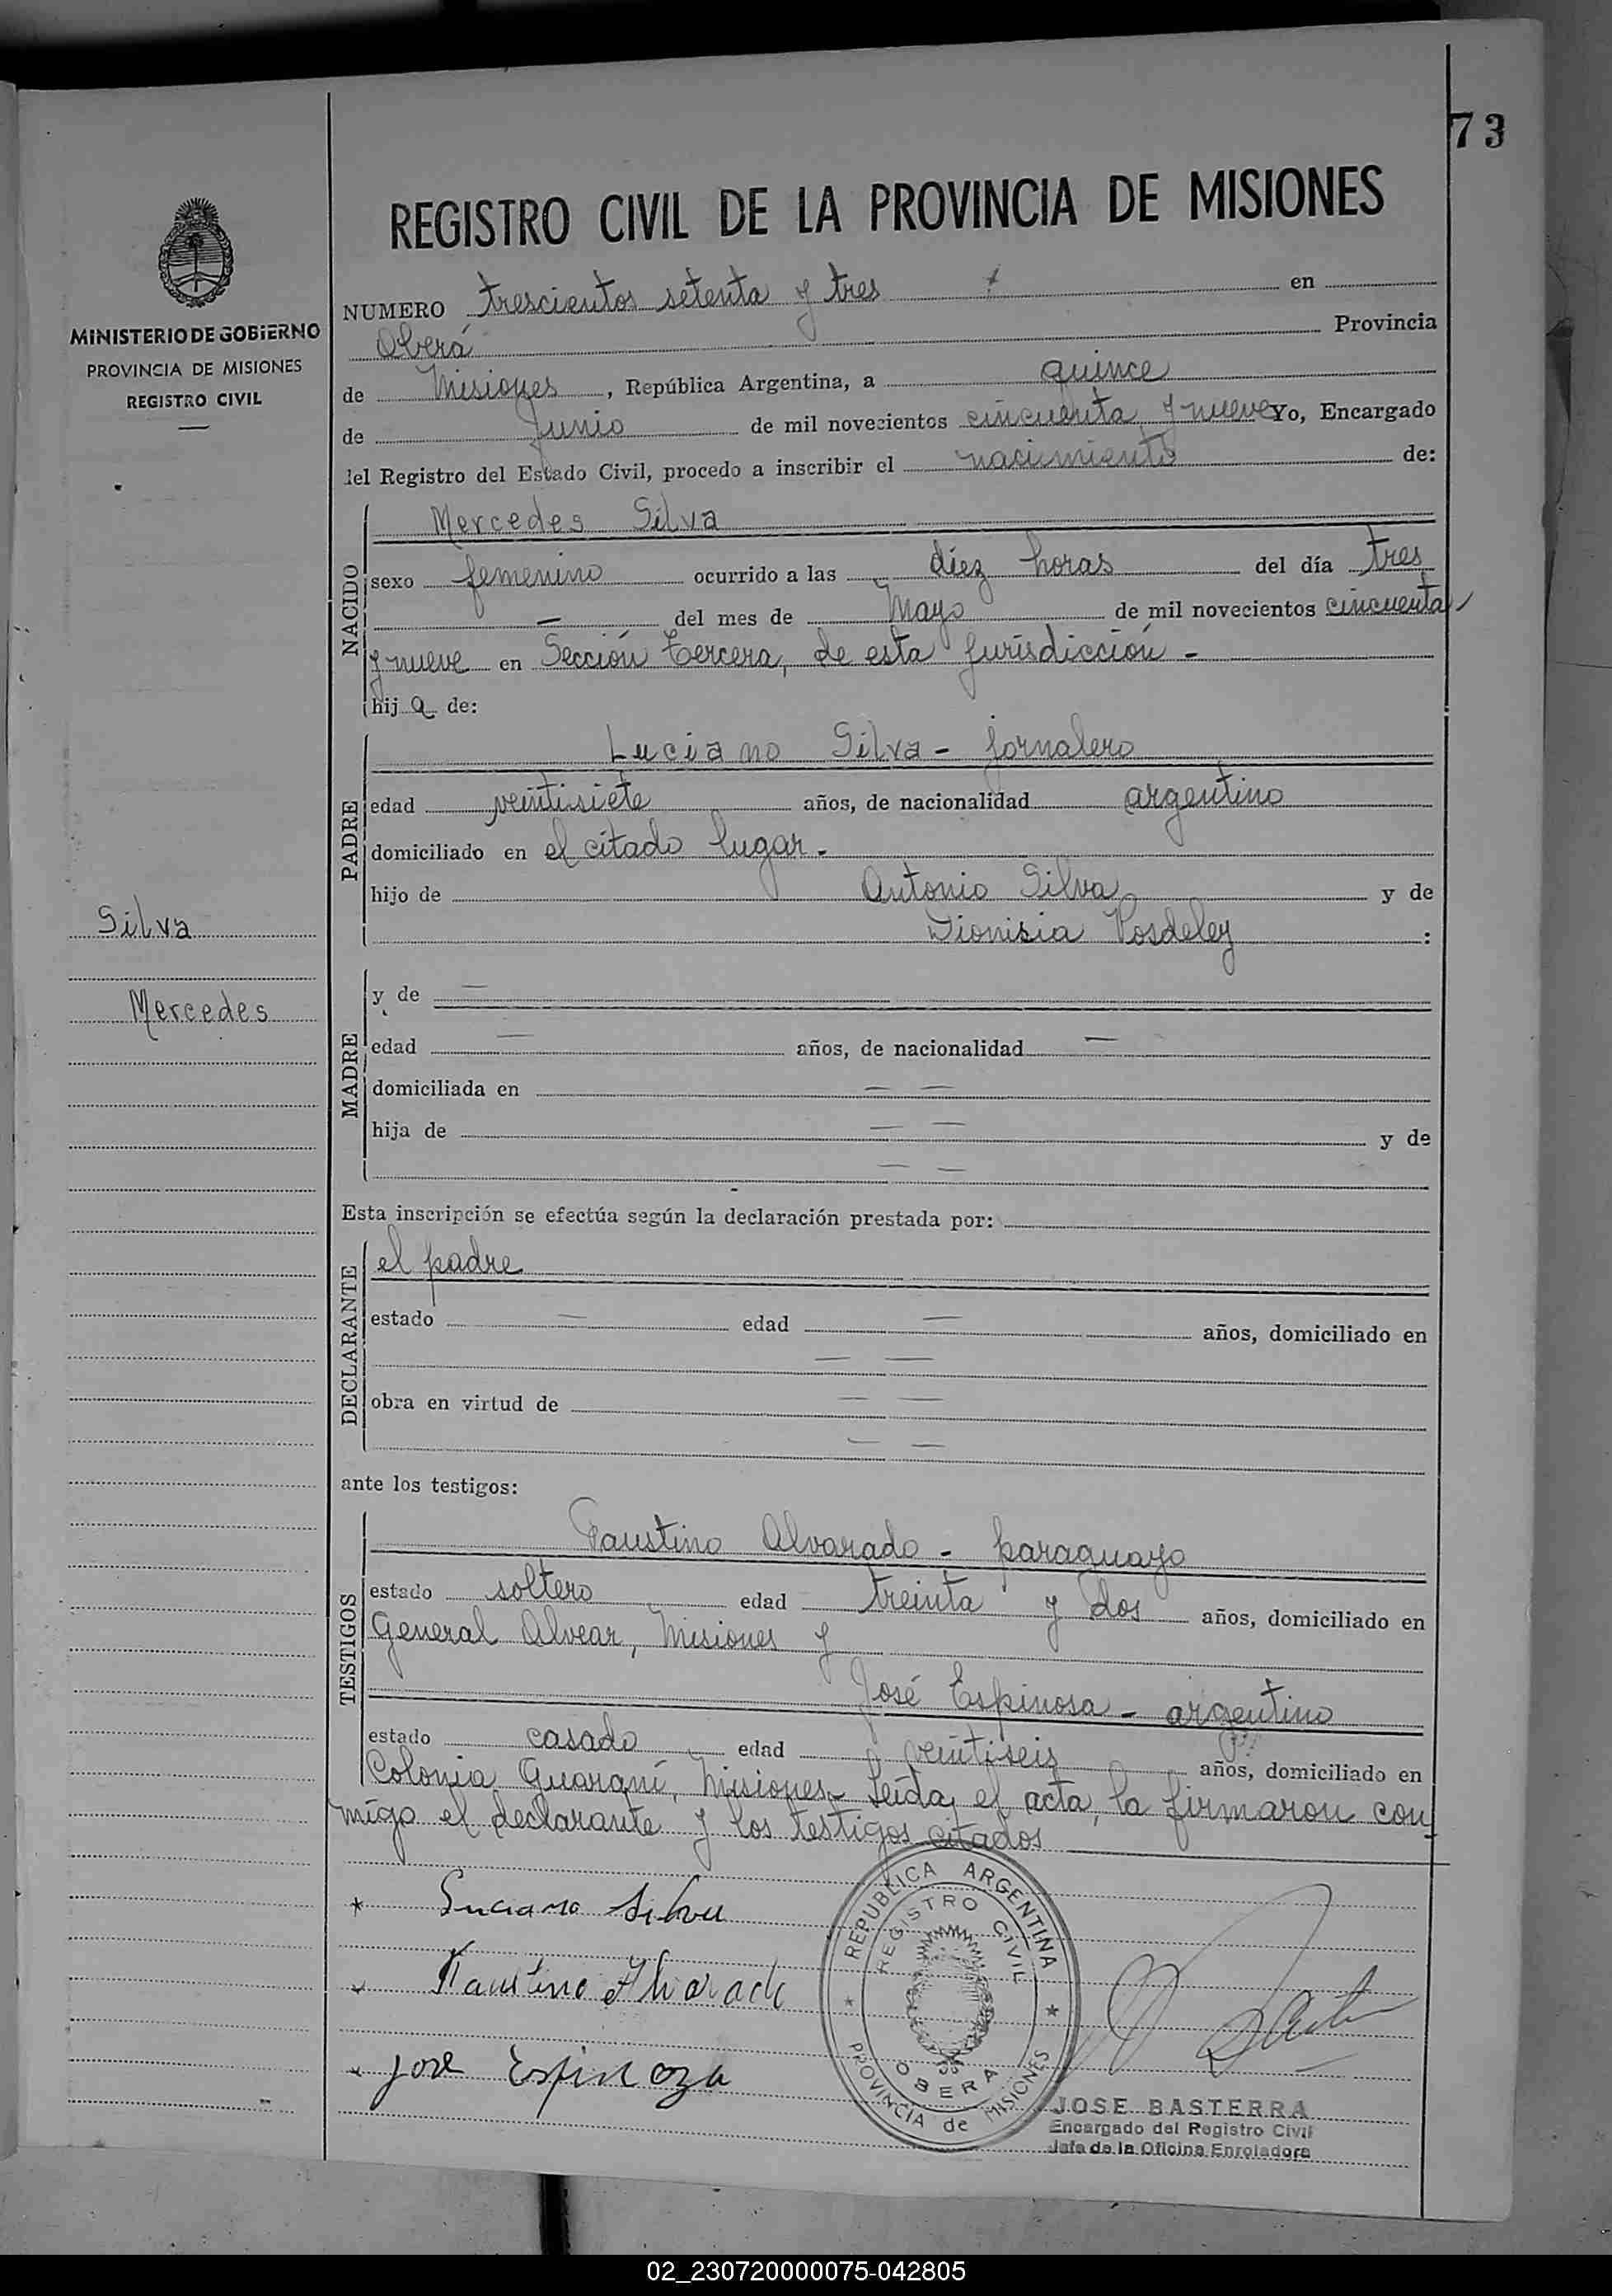 73
REGISTRO CIVIL DE LA PROVINCIA DE MISIONES
MINISTERIO DE GOBIERNO
PROVINCIA DE MISIONES
REGISTRO CIVIL
NUMERO trescientos setenta y tres en
Oberá Provincia
de Misiones, República Argentina, a quince
de Junio de mil novecientos cincuenta y nueve Yo, Encargado
del Registro del Estado Civil, procedo a inscribir el nacimiento de:
NACIDO
Mercedes Silva
sexo femenino ocurrido a las diez horas del día tres
— del mes de Mayo de mil novecientos cincuenta
y nueve en Sección tercera, de esta jurisdicción -
hija de:
PADRE
Luciano Silva - jornalero
edad veintisiete años, de nacionalidad argentino
domiciliado en el citado lugar -
hijo de Antonio Silva y de
Dionisia Posdeley :
Silva
Mercedes
MADRE
y de —
edad — años, de nacionalidad —
domiciliada en — —
hija de — — y de
— —
Esta inscripción se efectúa según la declaración prestada por:
DECLARANTE
el padre
estado — edad — años, domiciliado en
— —
obra en virtud de — —
— —
ante los testigos:
TESTIGOS
Faustino Alvarado - paraguayo
estado soltero edad treinta y dos años, domiciliado en
General Alvear, Misiones y
José Espinosa - argentino
estado casado edad veintiseis años, domiciliado en
Colonia Guaraní, Misiones. Leída el acta, la firmaron con-
migo el declarante y los testigos citados
Luciano Silva
Faustino Alvarado
Jose Espinoza
REPUBLICA ARGENTINA
REGISTRO CIVIL
OBERA
PROVINCIA de MISIONES
JOSE BASTERRA
Encargado del Registro Civil
Jefe de la Oficina Enroladora
02_230720000075-042805